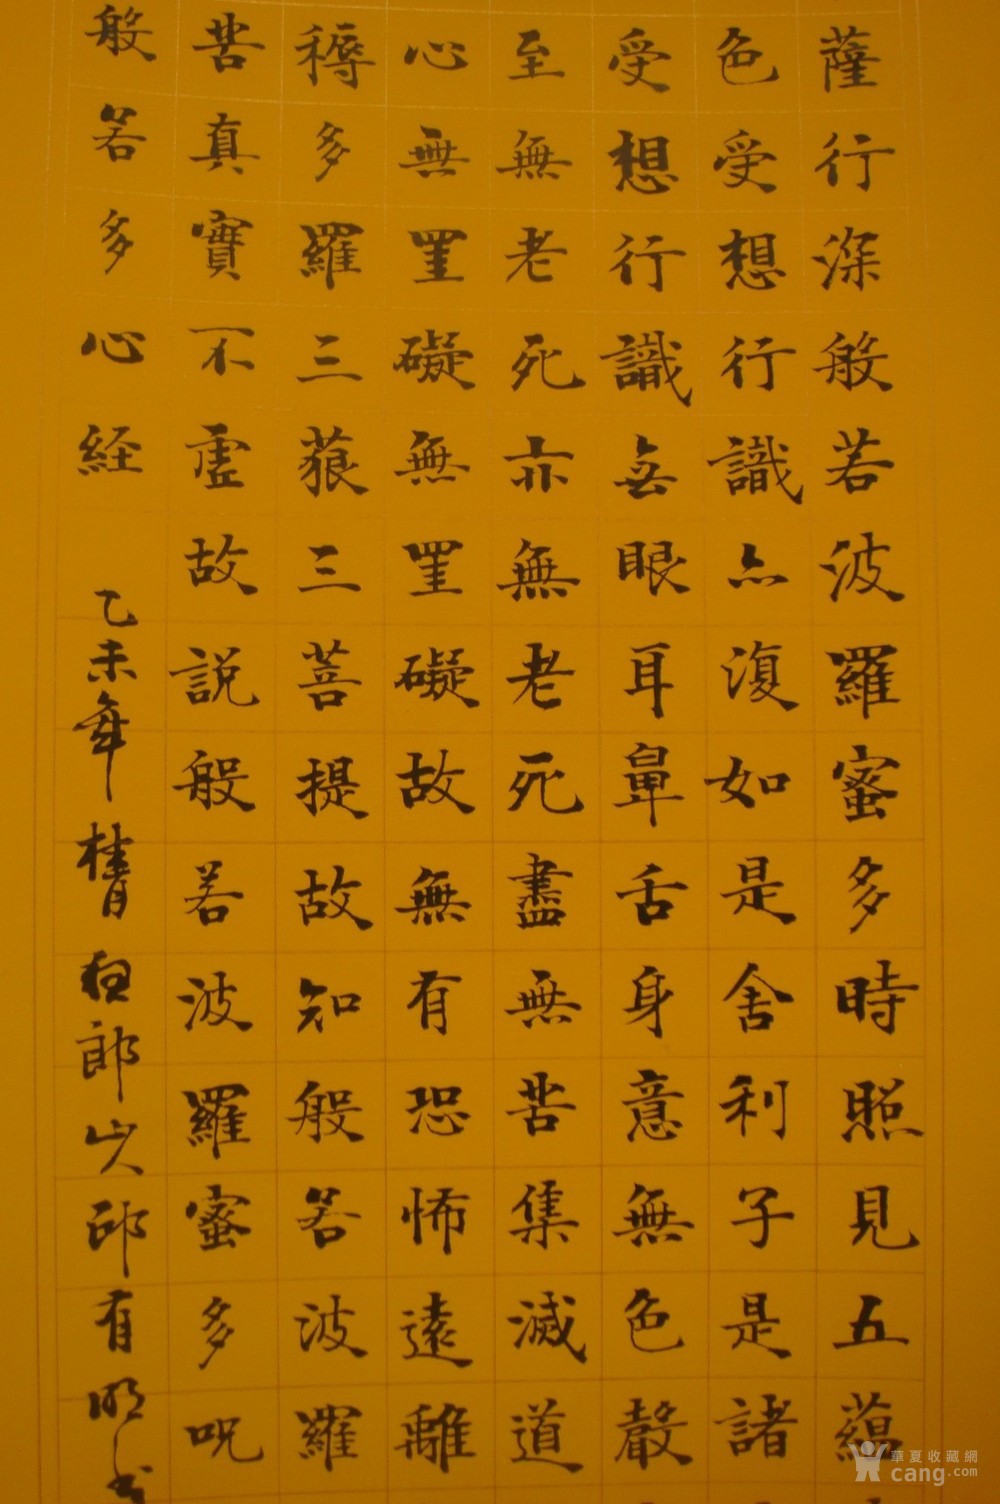 薩行深般若波羅蜜多時照見五蘊
色受想行識亦復如是舍利子是諸
受想行識無眼耳鼻舌身意無色聲
至無老死亦無老死盡無苦集滅道
心無罣礙無罣礙故無有恐怖遠離
耨多羅三藐三菩提故知般若波羅
苦真實不虛故說般若波羅蜜多呪
般若多心経 乙未年 郎山人邱有明书
華夏收藏網
cang.com